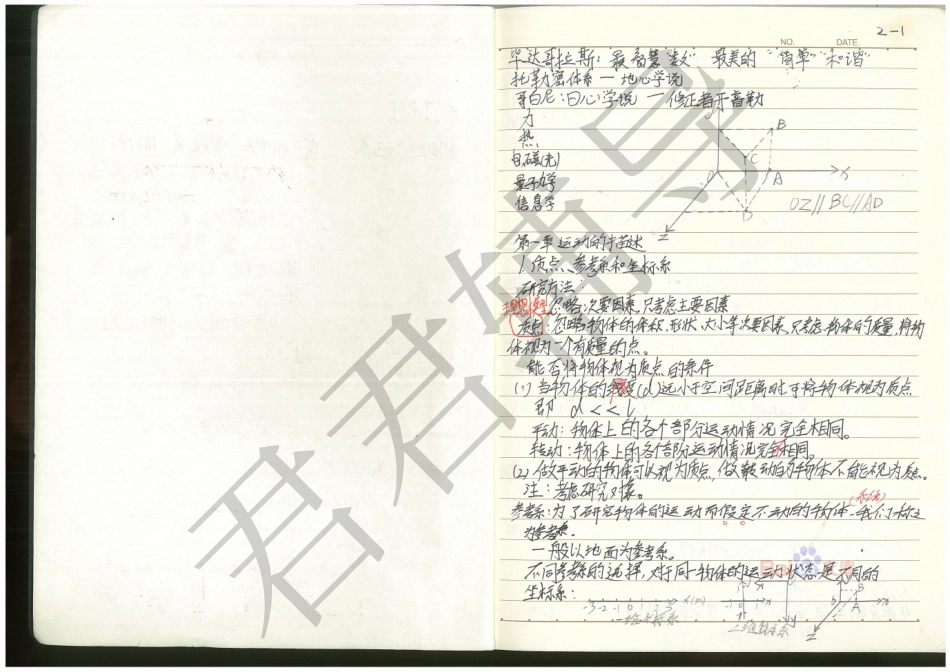 2-1
NO. DATE.
毕达哥拉斯：最智慧"数" 最美的"简单""和谐"
托勒密体系—地心学说
哥白尼：日心学说 — 修正者开普勒
力
热
电磁(光)
量子力学
信息学
B
C
O
A
X
D
Z
OZ//BC//AD
第一章 运动的描述
1. 质点、参考系和坐标系
研究方法：
理想模型 忽略次要因素，只考虑主要因素
质点：忽略物体的体积，形状，大小等次要因素，只考虑物体的质量，将物
体视为一个有质量的点。
能否将物体视为质点的条件
(1) 当物体的线度(d)远小于空间距离时可将物体视为质点
即 d<<l
平动：物体上的各个部分运动情况完全相同。
转动：物体上的各个部分运动情况完全不相同。
(2) 做平动的物体可以视为质点，做转动的物体不能视为质点。
注：考虑研究对象。
参考系：为了研究物体的运动而假定不动的物体—我们称之
为参考系。
一般以地面为参考系。
不同参考系的选择，对于同一物体的运动状态是不同的
坐标系：
-3 -2 -1 0 1 2 3 x(m)
一维坐标系
二维坐标系
君君辅导